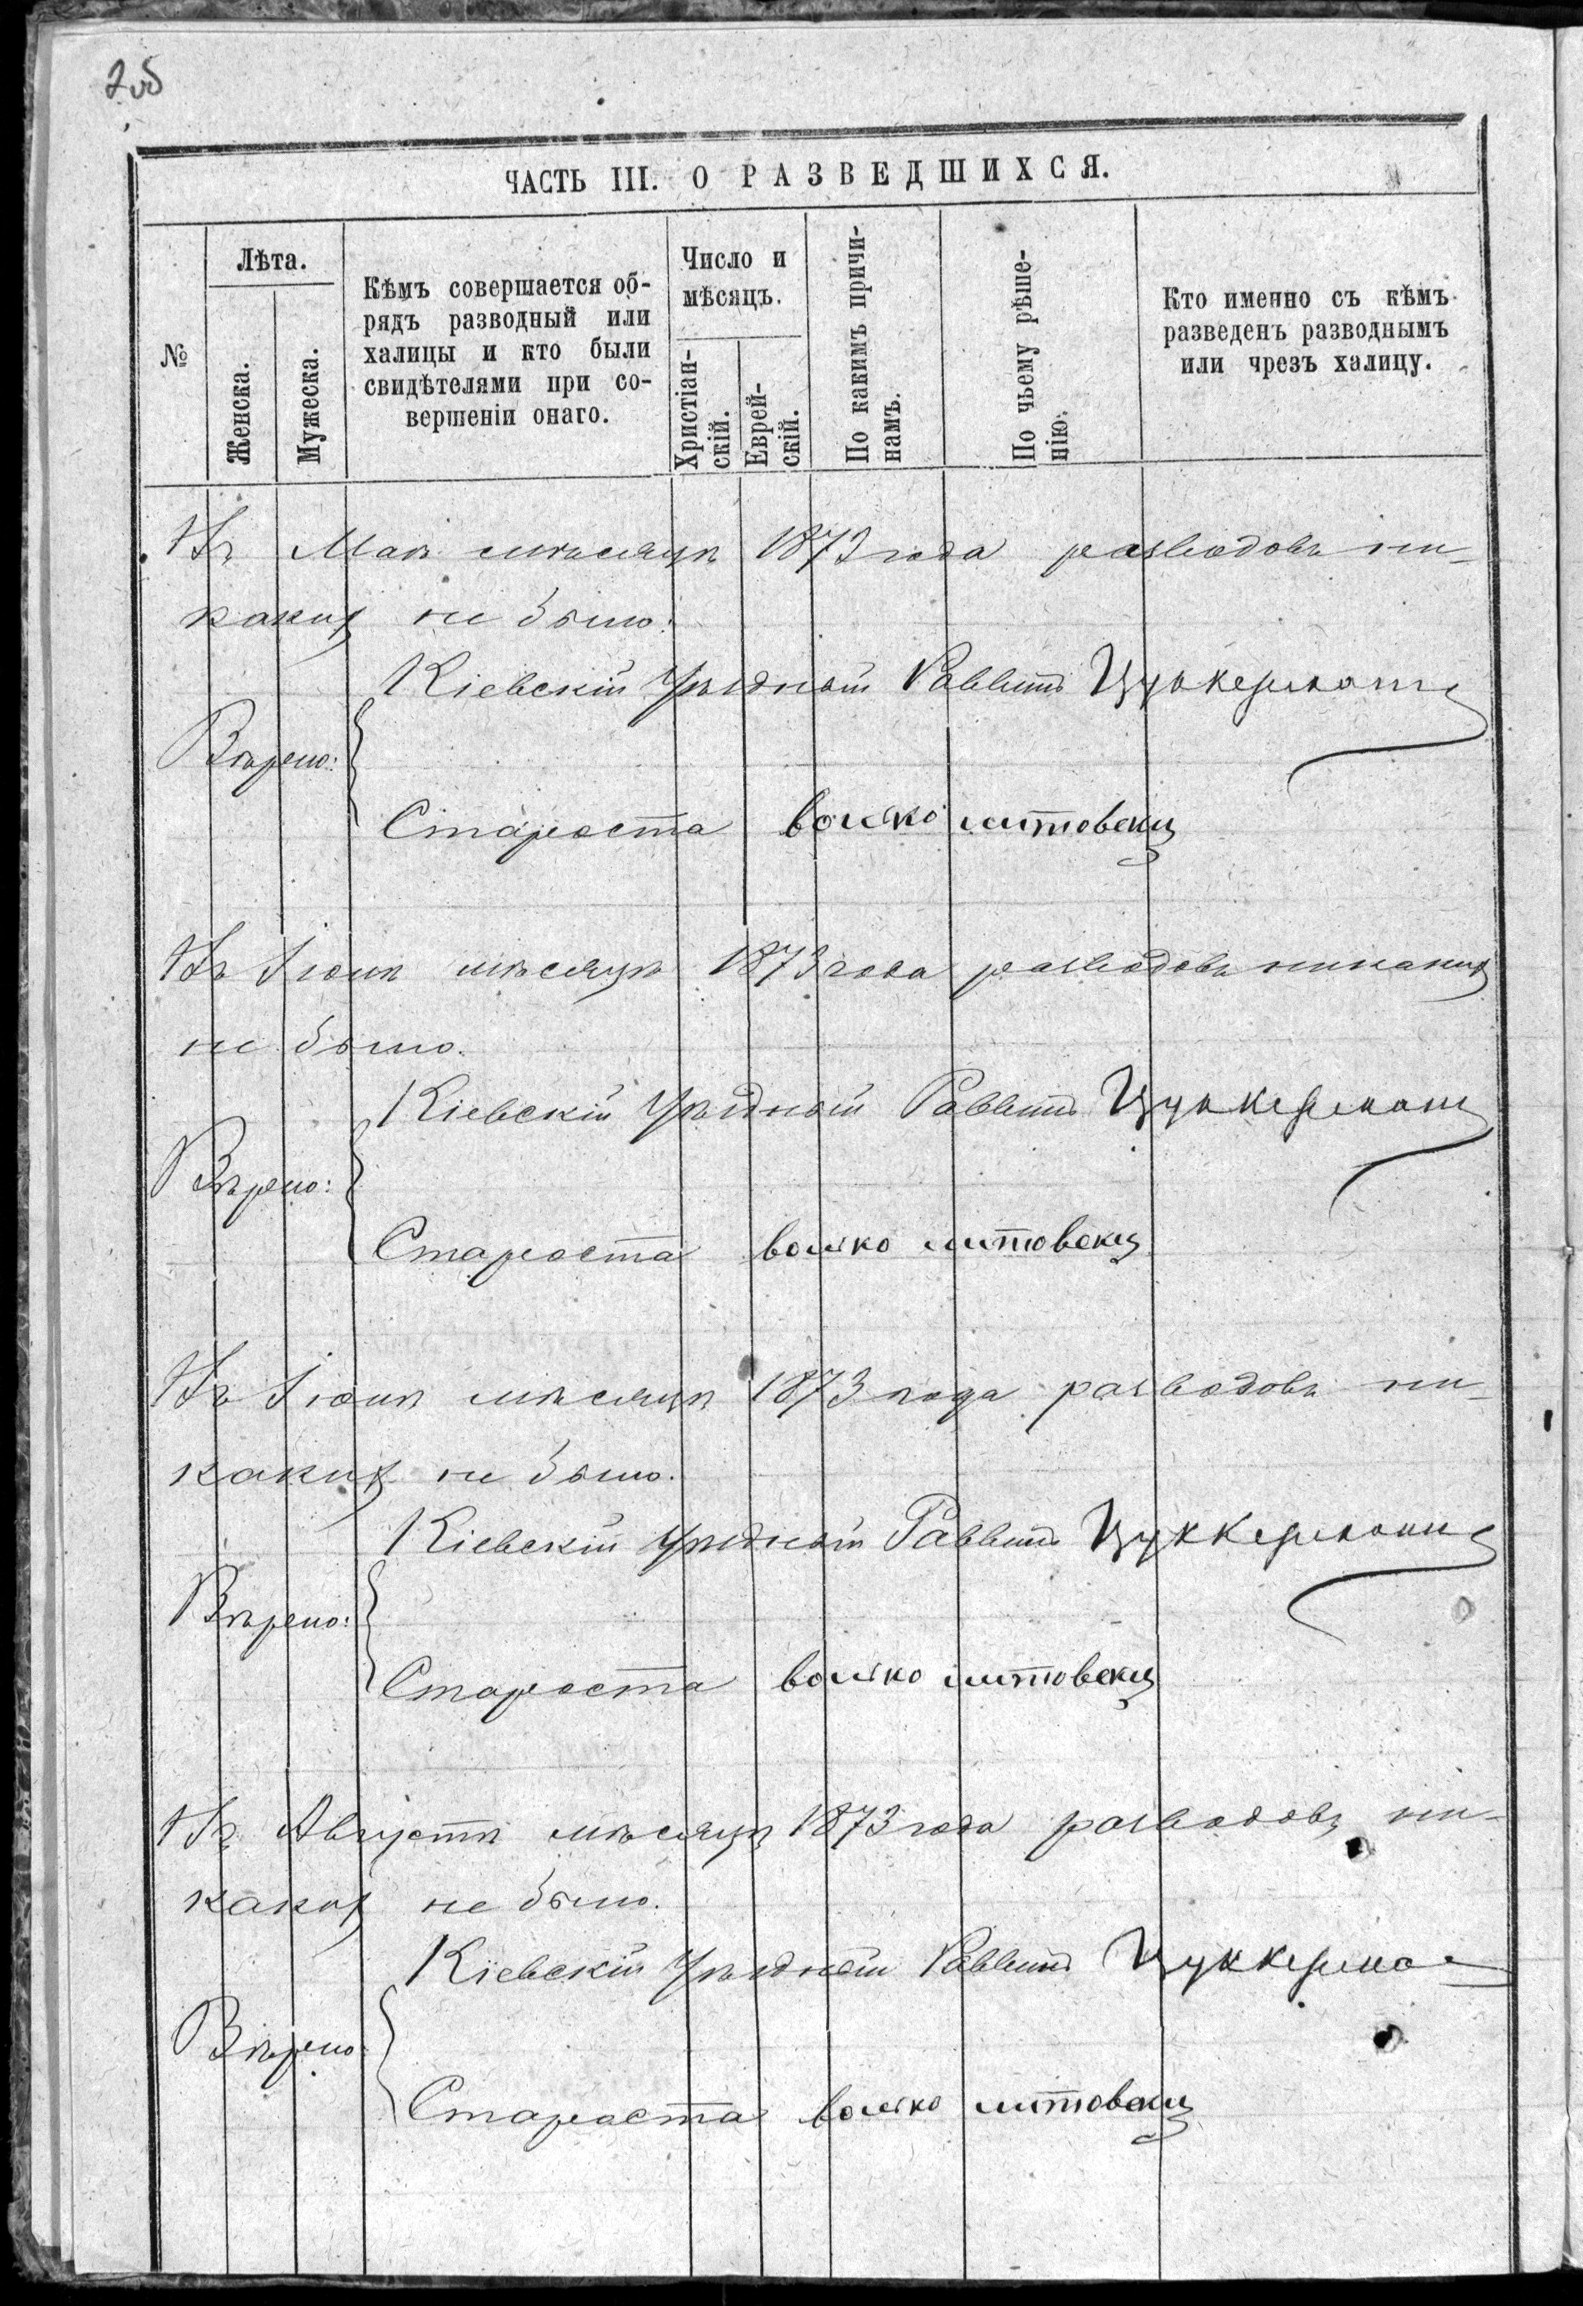 2об
ЧАСТЬ III. О РАЗВЕДШИХСЯ.
№
Лѣта.
Женска.
Мужеска.
Кѣмъ совершается об-
рядъ разводный или
халицы и кто были
свидѣтелями при со-
вершеніи онаго.
Число и
мѣсяцъ.
Христіан-
скій.
Еврей-
скій.
По какимъ причи-
намъ.
По чьему рѣше-
нію.
Кто именно съ кѣмъ
разведенъ разводнымъ
или чрезъ халицу.
Въ Маѣ мѣсяцѣ 1873 года разводовъ ни-
какихъ не было.
Кіевскій Уѣздный Раввинъ Цуккерманъ
Вѣрно:
Староста Волько Литовскій
Въ Іюнѣ мѣсяцѣ 1873 года разводовъ никакихъ
не было.
Кіевскій Уѣздный Раввинъ Цуккерманъ
Вѣрно:
Староста Волько Литовскій
Въ Іюлѣ мѣсяцѣ 1873 года разводовъ ни-
какихъ не было.
Кіевскій Уѣздный Раввинъ Цуккерманъ
Вѣрно:
Староста Волько Литовскій
Въ Августѣ мѣсяцѣ 1873 года разводовъ ни-
какихъ не было.
Кіевскій Уѣздный Раввинъ Цуккерман
Вѣрно
Староста Волько Литовскій